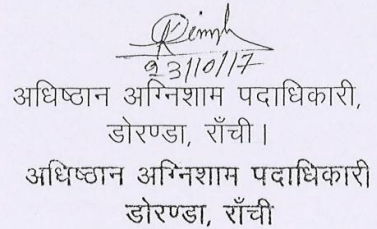 23/10/17
अधिष्ठान अग्निशाम पदाधिकारी,
डोरण्डा, राँची।
अधिष्ठान अग्निशाम पदाधिकारी
डोरण्डा, राँची